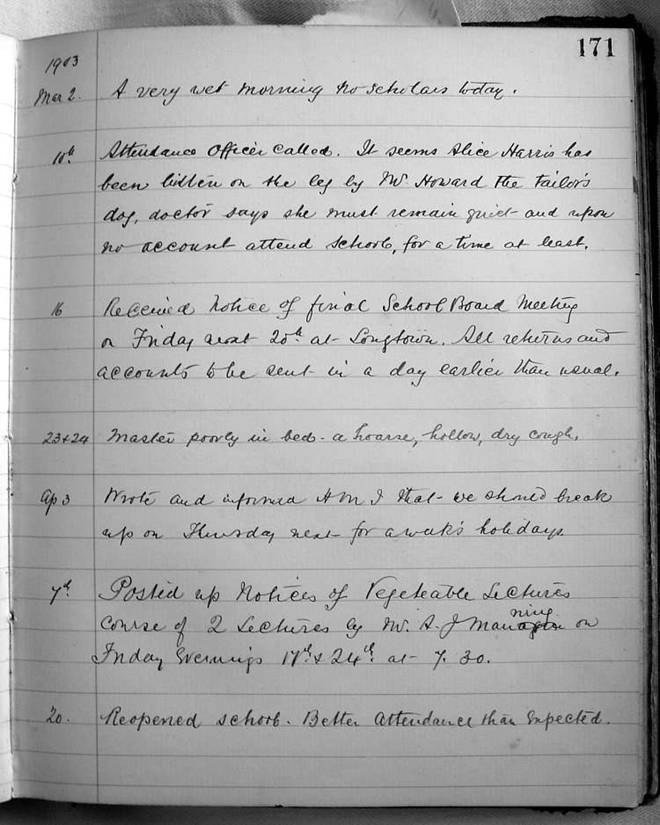 171
1903
Mar 2. A very wet morning no scholars today.
10th Attendance Officer called. It seems Alice Harris has
been bitten on the leg by Mr. Howard the tailor's
dog, doctor says she must remain quiet and upon
no account attend school, for a time at least.
16 Received notice of final School Board Meeting
on Friday next 20th at Longtown. All returns and
accounts to be sent in a day earlier than usual.
23+24 Master poorly in bed - a hoarse, hollow, dry cough.
Ap 3 Wrote and informed H M I that we should break
up on Thursday next for a week's holidays.
7th Posted up Notices of Vegeteable Lectures
Course of 2 Lectures by Mr. A. J Manning on
Friday Evenings 17th & 24th at 7. 30.
20. Reopened school. Better attendance than expected.